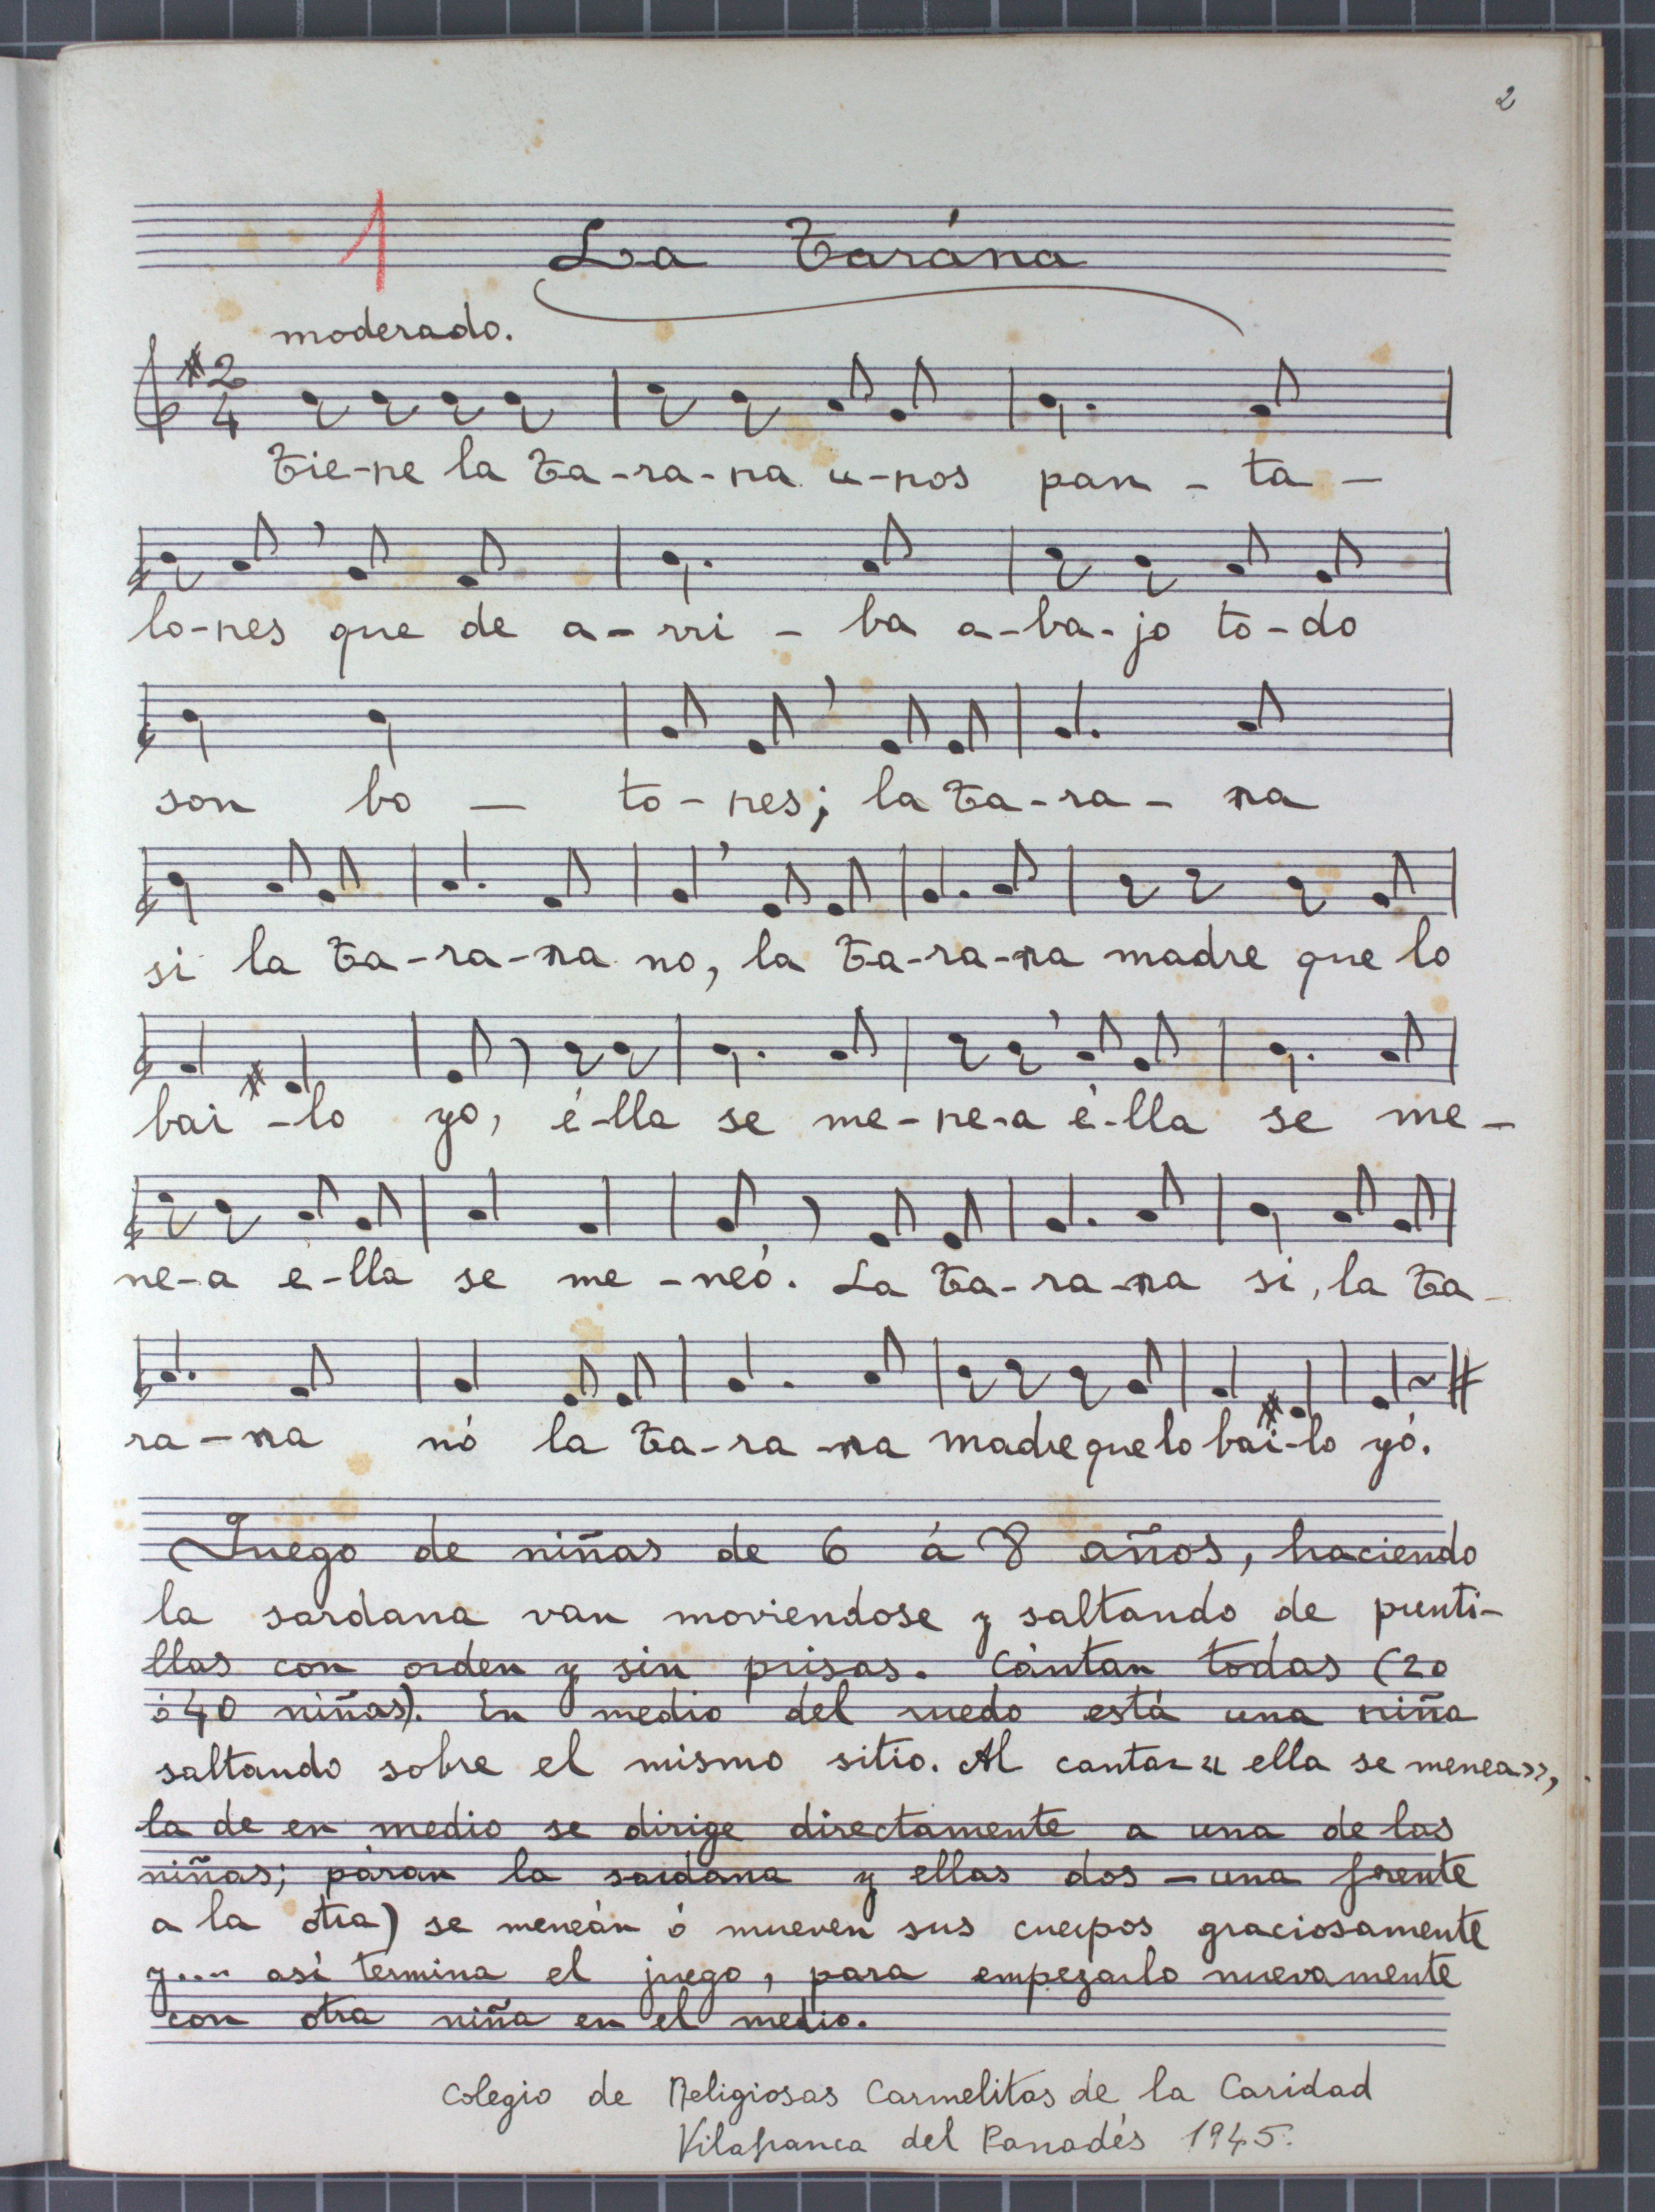 2
1 La Tarána
moderado.
2
4
Tie-ne la Ta-ra-na u-nos pan - ta -
lo-nes que de a-rri - ba a-ba-jo to-do
son bo — to-nes; la Ta-ra- na
si la Ta-ra-na no, la Ta-ra-na madre que lo
bai-lo yo, é-lla se me-ne-a é-lla se me-
ne-a e-lla se me-neó. La Ta-ra-na si, la Ta-
ra-na nó la Ta-ra-na madre que lo bai-lo yó.
Juego de niñas de 6 á 8 años, haciendo
la sardana van moviendose y saltando de punti-
llas con orden y sin prisas. Cántan todas (20
ó 40 niñas). En medio del ruedo está una niña
saltando sobre el mismo sitio. Al cantar « ella se menea»,
la de en medio se dirige directamente a una de las
niñas; páran la sardana y ellas dos - una frente
a la otra) se meneán ó mueven sus cuerpos graciosamente
y.... así termina el juego, para empezarlo nuevamente
con otra niña en el medio.
Colegio de Religiosas Carmelitas de la Caridad
Vilafranca del Panadés 1945.